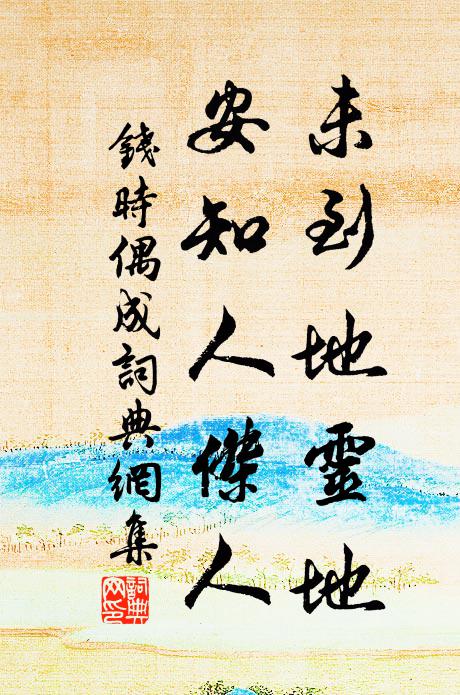 未到地靈地
安知人傑人
錢時偶成詞典網集
詞典
网印